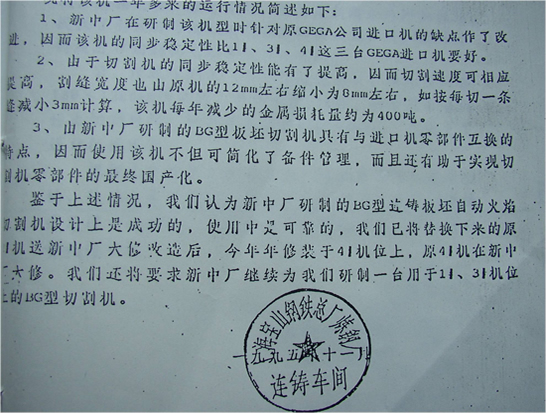 将该机一年多来的运行情况简述如下：
1、新中厂在研制该机型时针对原GEGA公司进口机的缺点作了改
进，因而该机的同步稳定性比1#、3#、4#这三台GEGA进口机要好。
2、由于切割机的同步稳定性能有了提高，因而切割速度可相应
提高，割缝宽度也由原机的12mm左右缩小为8mm左右，如按每切一条
缝减小3mm计算，该机每年减少的金属损耗量约为400吨。
3、由新中厂研制的BG型板坯切割机具有与进口机零部件互换的
特点，因而使用该机不但可简化了备件管理，而且还有助于实现切
割机零部件的最终国产化。
鉴于上述情况，我们认为新中厂研制的BG型连铸板坯自动火焰
切割机设计上是成功的，使用中是可靠的，我们已将替换下来的原
机送新中厂大修改造后，今年年修装于4#机位上，原4#机在新中
厂大修。我们还将要求新中厂继续为我们研制一台用于1#、3#机位
上的BG型切割机。
上海宝山钢铁总厂炼钢厂
一九九五年十一月
连铸车间